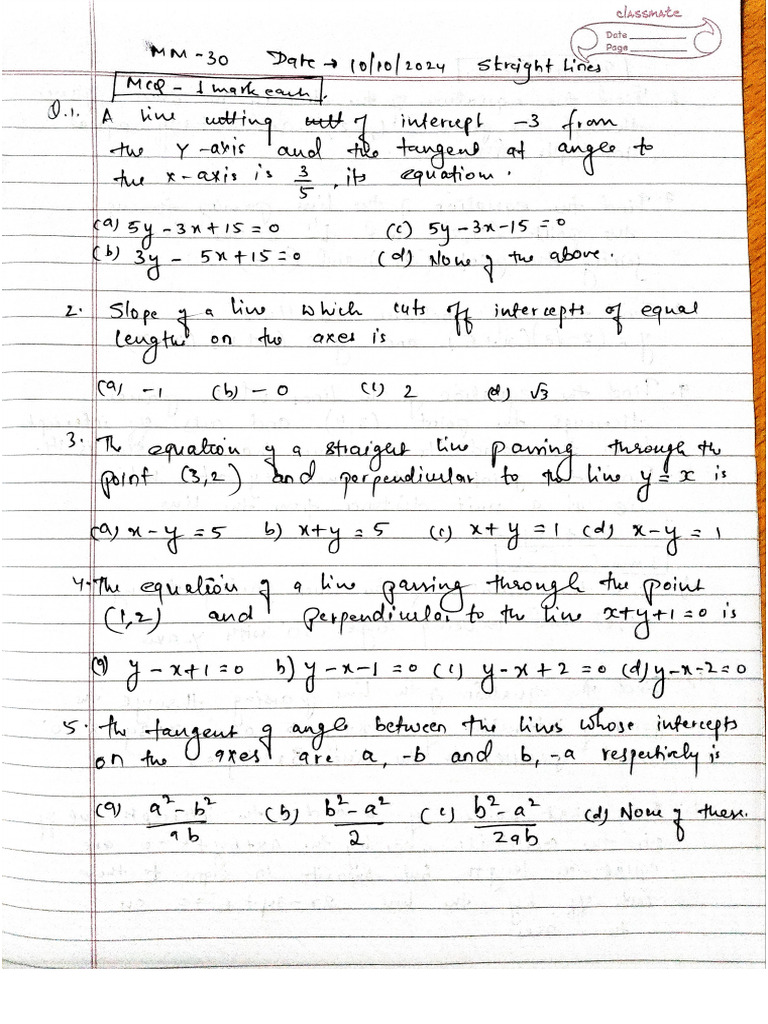 classmate
Date
Page
MM-30 Date → 10/10/2024 Straight Lines
MCQ - 1 mark each.
Q.1. A line cutting cutt of intercept -3 from
the Y-axis and the tangent at angle to
the x-axis is 3/5, its equation.
(a) 5y-3x+15=0 (c) 5y-3x-15=0
(b) 3y- 5x+15=0 (d) None of the above.
2. Slope of a line which cuts off intercepts of equal
lengths on the axes is
(a) -1 (b) -0 (c) 2 (d) √3
3. The equation of a straight line passing through the
point (3,2) and perpendicular to the line y=x is
(a) x-y=5 b) x+y=5 (c) x+y=1 (d) x-y=1
4. The equation of a line passing through the point
(1,2) and perpendicular to the line x+y+1=0 is
(a) y-x+1=0 b) y-x-1=0 (c) y-x+2=0 (d) y-x-2=0
5. The tangent of angle between the lines whose intercepts
on the axes are a, -b and b, -a respectively is
(a) a²-b²/ab (b) b²-a²/2 (c) b²-a²/2ab (d) None of these.